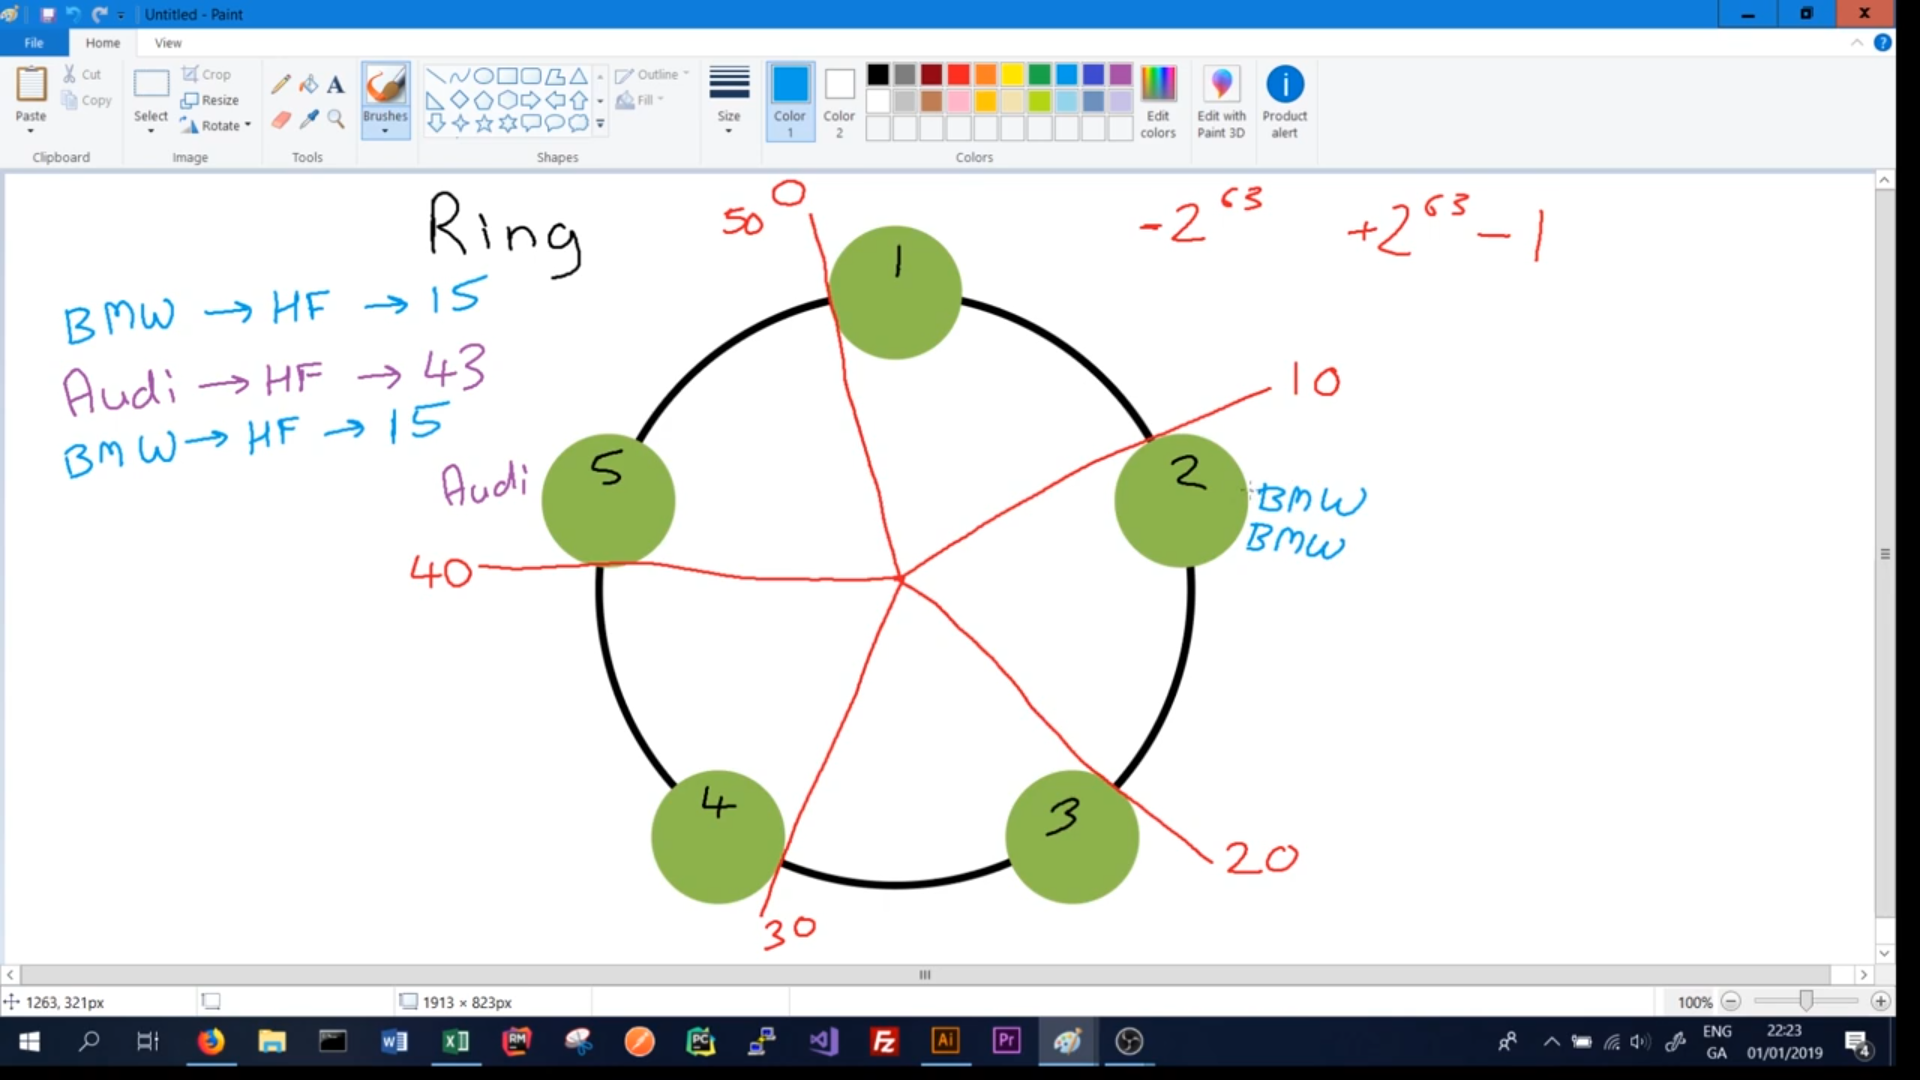 Untitled - Paint
File Home View
Paste
Cut
Copy
Clipboard
Select
Crop
Resize
Rotate
Image
A
Tools
Brushes
Shapes
Outline
Fill
Size
Color 1
Color 2
Colors
Edit colors
Edit with Paint 3D
Product alert
Ring
50 0
-2^63 +2^63 - 1
BMW → HF → 15
Audi → HF → 43
BMW → HF → 15
1
10
2
BMW
BMW
5
Audi
40
4
3
20
30
1263, 321px
1913 × 823px
100%
W
X
RM
PC
FZ
Ai
Pr
ENG
GA
22:23
01/01/2019
4